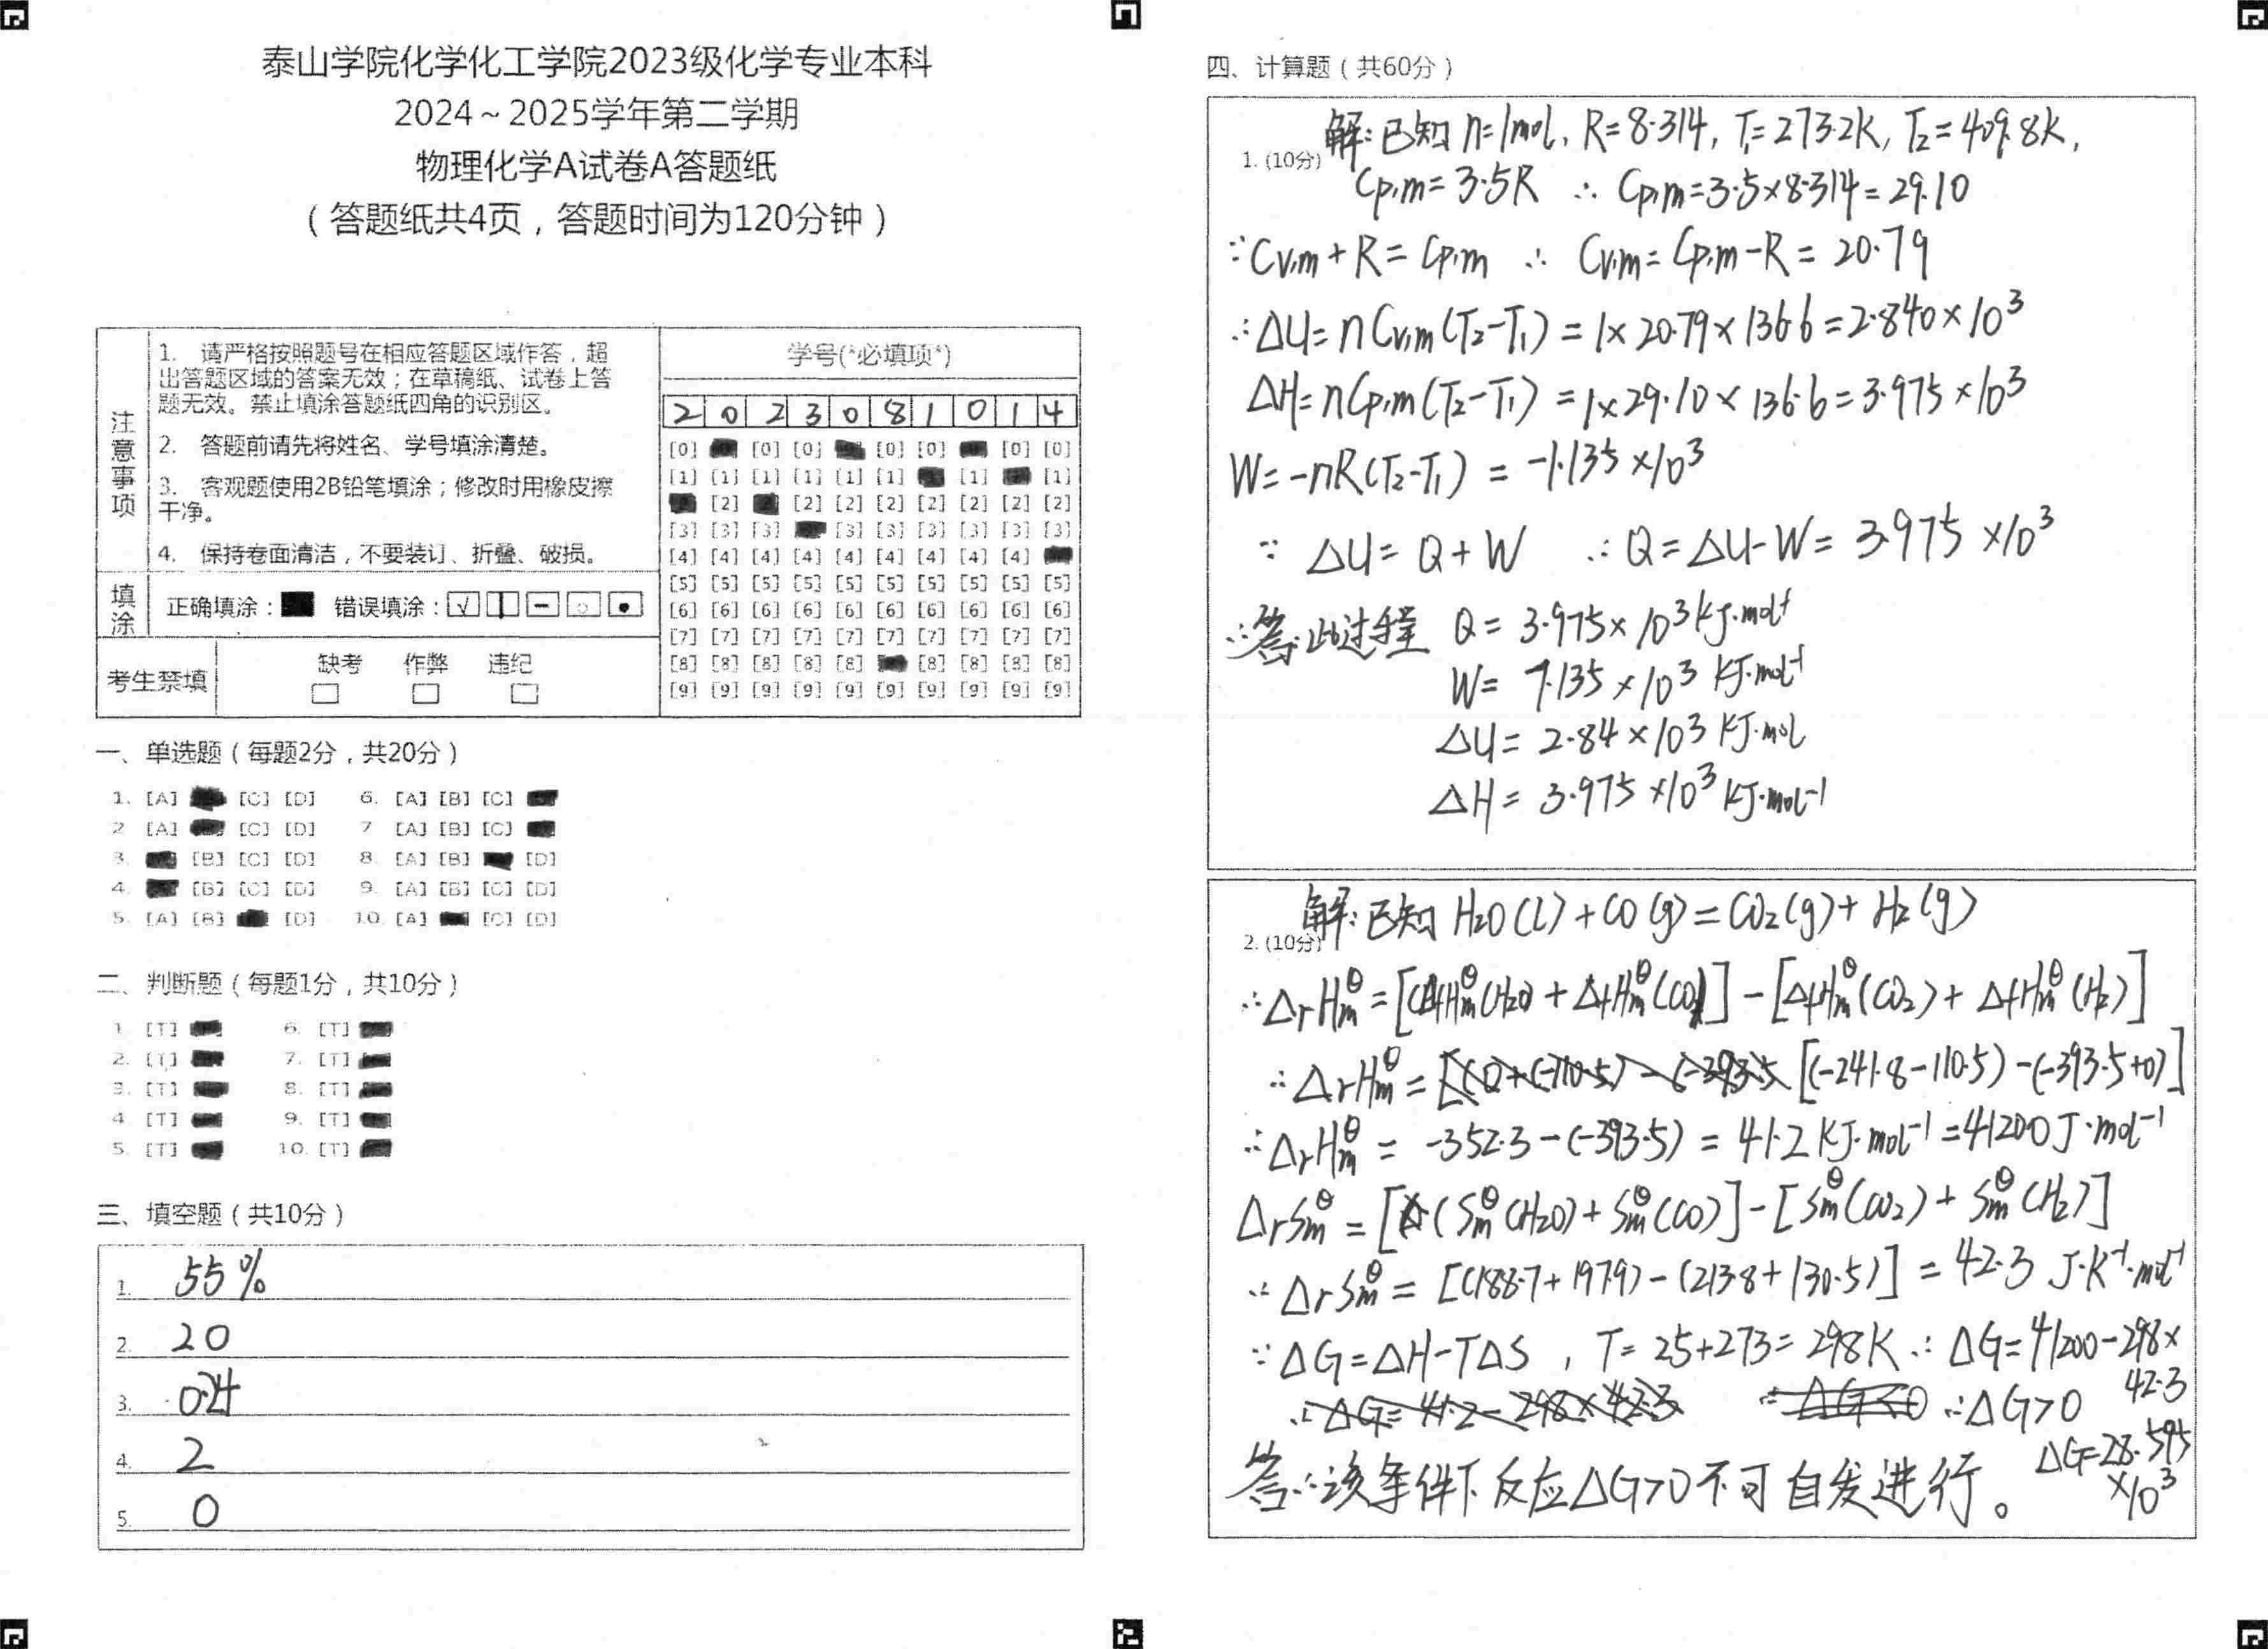 泰山学院化学化工学院2023级化学专业本科
2024～2025学年第二学期
物理化学A试卷A答题纸
（答题纸共4页，答题时间为120分钟）
注意事项
1. 请严格按照题号在相应答题区域作答，超
出答题区域的答案无效；在草稿纸、试卷上答
题无效。禁止填涂答题纸四角的识别区。
2. 答题前请先将姓名、学号填涂清楚。
3. 客观题使用2B铅笔填涂；修改时用橡皮擦
干净。
4. 保持卷面清洁，不要装订、折叠、破损。
填涂
正确填涂： 错误填涂：
考生禁填
缺考 作弊 违纪
学号(*必填项*)
2 0 2 3 0 8 1 0 1 4
[0] [0] [0] [0] [0] [0] [0]
[1] [1] [1] [1] [1] [1] [1] [1]
[2] [2] [2] [2] [2] [2] [2] [2]
[3] [3] [3] [3] [3] [3] [3] [3] [3]
[4] [4] [4] [4] [4] [4] [4] [4] [4]
[5] [5] [5] [5] [5] [5] [5] [5] [5] [5]
[6] [6] [6] [6] [6] [6] [6] [6] [6] [6]
[7] [7] [7] [7] [7] [7] [7] [7] [7] [7]
[8] [8] [8] [8] [8] [8] [8] [8] [8]
[9] [9] [9] [9] [9] [9] [9] [9] [9] [9]
一、单选题（每题2分，共20分）
1. [A] [C] [D] 6. [A] [B] [C]
2 [A] [C] [D] 7 [A] [B] [C]
3. [B] [C] [D] 8. [A] [B] [D]
4. [B] [C] [D] 9. [A] [B] [C] [D]
5. [A] [B] [D] 10. [A] [C] [D]
二、判断题（每题1分，共10分）
1. [T] 6. [T]
2. [T] 7. [T]
3. [T] 8. [T]
4 [T] 9. [T]
5. [T] 10. [T]
三、填空题（共10分）
1. 55%
2. 20
3.
4. 2
5. 0
四、计算题（共60分）
1. (10分) 解：已知 n=1mol, R=8.314, T₁=273.2K, T₂=409.8K,
Cp,m=3.5R ∴ Cp,m=3.5×8.314=29.10
∵Cv,m+R=Cp,m ∴ Cv,m=Cp,m-R=20.79
∴ΔU=nCv,m(T₂-T₁)=1×20.79×136.6=2.840×10³
ΔH=nCp,m(T₂-T₁)=1×29.10×136.6=3.975×10³
W=-nR(T₂-T₁)=-1.135×10³
∵ ΔU=Q+W ∴Q=ΔU-W=3.975×10³
∴答：此过程 Q=3.975×10³KJ·mol⁻¹
W=-1.135×10³ KJ·mol⁻¹
ΔU=2.84×10³ KJ·mol
ΔH=3.975×10³ KJ·mol⁻¹
2. (10分) 解：已知 H₂O(l)+CO(g)=CO₂(g)+H₂(g)
∴ΔrHm^θ=[(ΔfHm^θ(H₂O)+ΔfHm^θ(CO)]-[ΔfHm^θ(CO₂)+ΔfHm^θ(H₂)]
∴ΔrHm^θ=[(-241.8-110.5)-(-393.5+0)]
∴ΔrHm^θ=-352.3-(-393.5)=41.2KJ·mol⁻¹=41200J·mol⁻¹
ΔrSm^θ=[(Sm^θ(H₂O)+Sm^θ(CO)]-[Sm^θ(CO₂)+Sm^θ(H₂)]
∴ΔrSm^θ=[(188.7+197.9)-(213.8+130.5)]=42.3 J·K⁻¹·mol⁻¹
∵ΔG=ΔH-TΔS, T=25+273=298K ∴ΔG=41200-298×
42.3
∴ΔG=41.2-298×42.3 ∴ΔG<0 ∴ΔG>0
ΔG=28.595
×10³
答：∴该条件下反应ΔG>0不可自发进行。